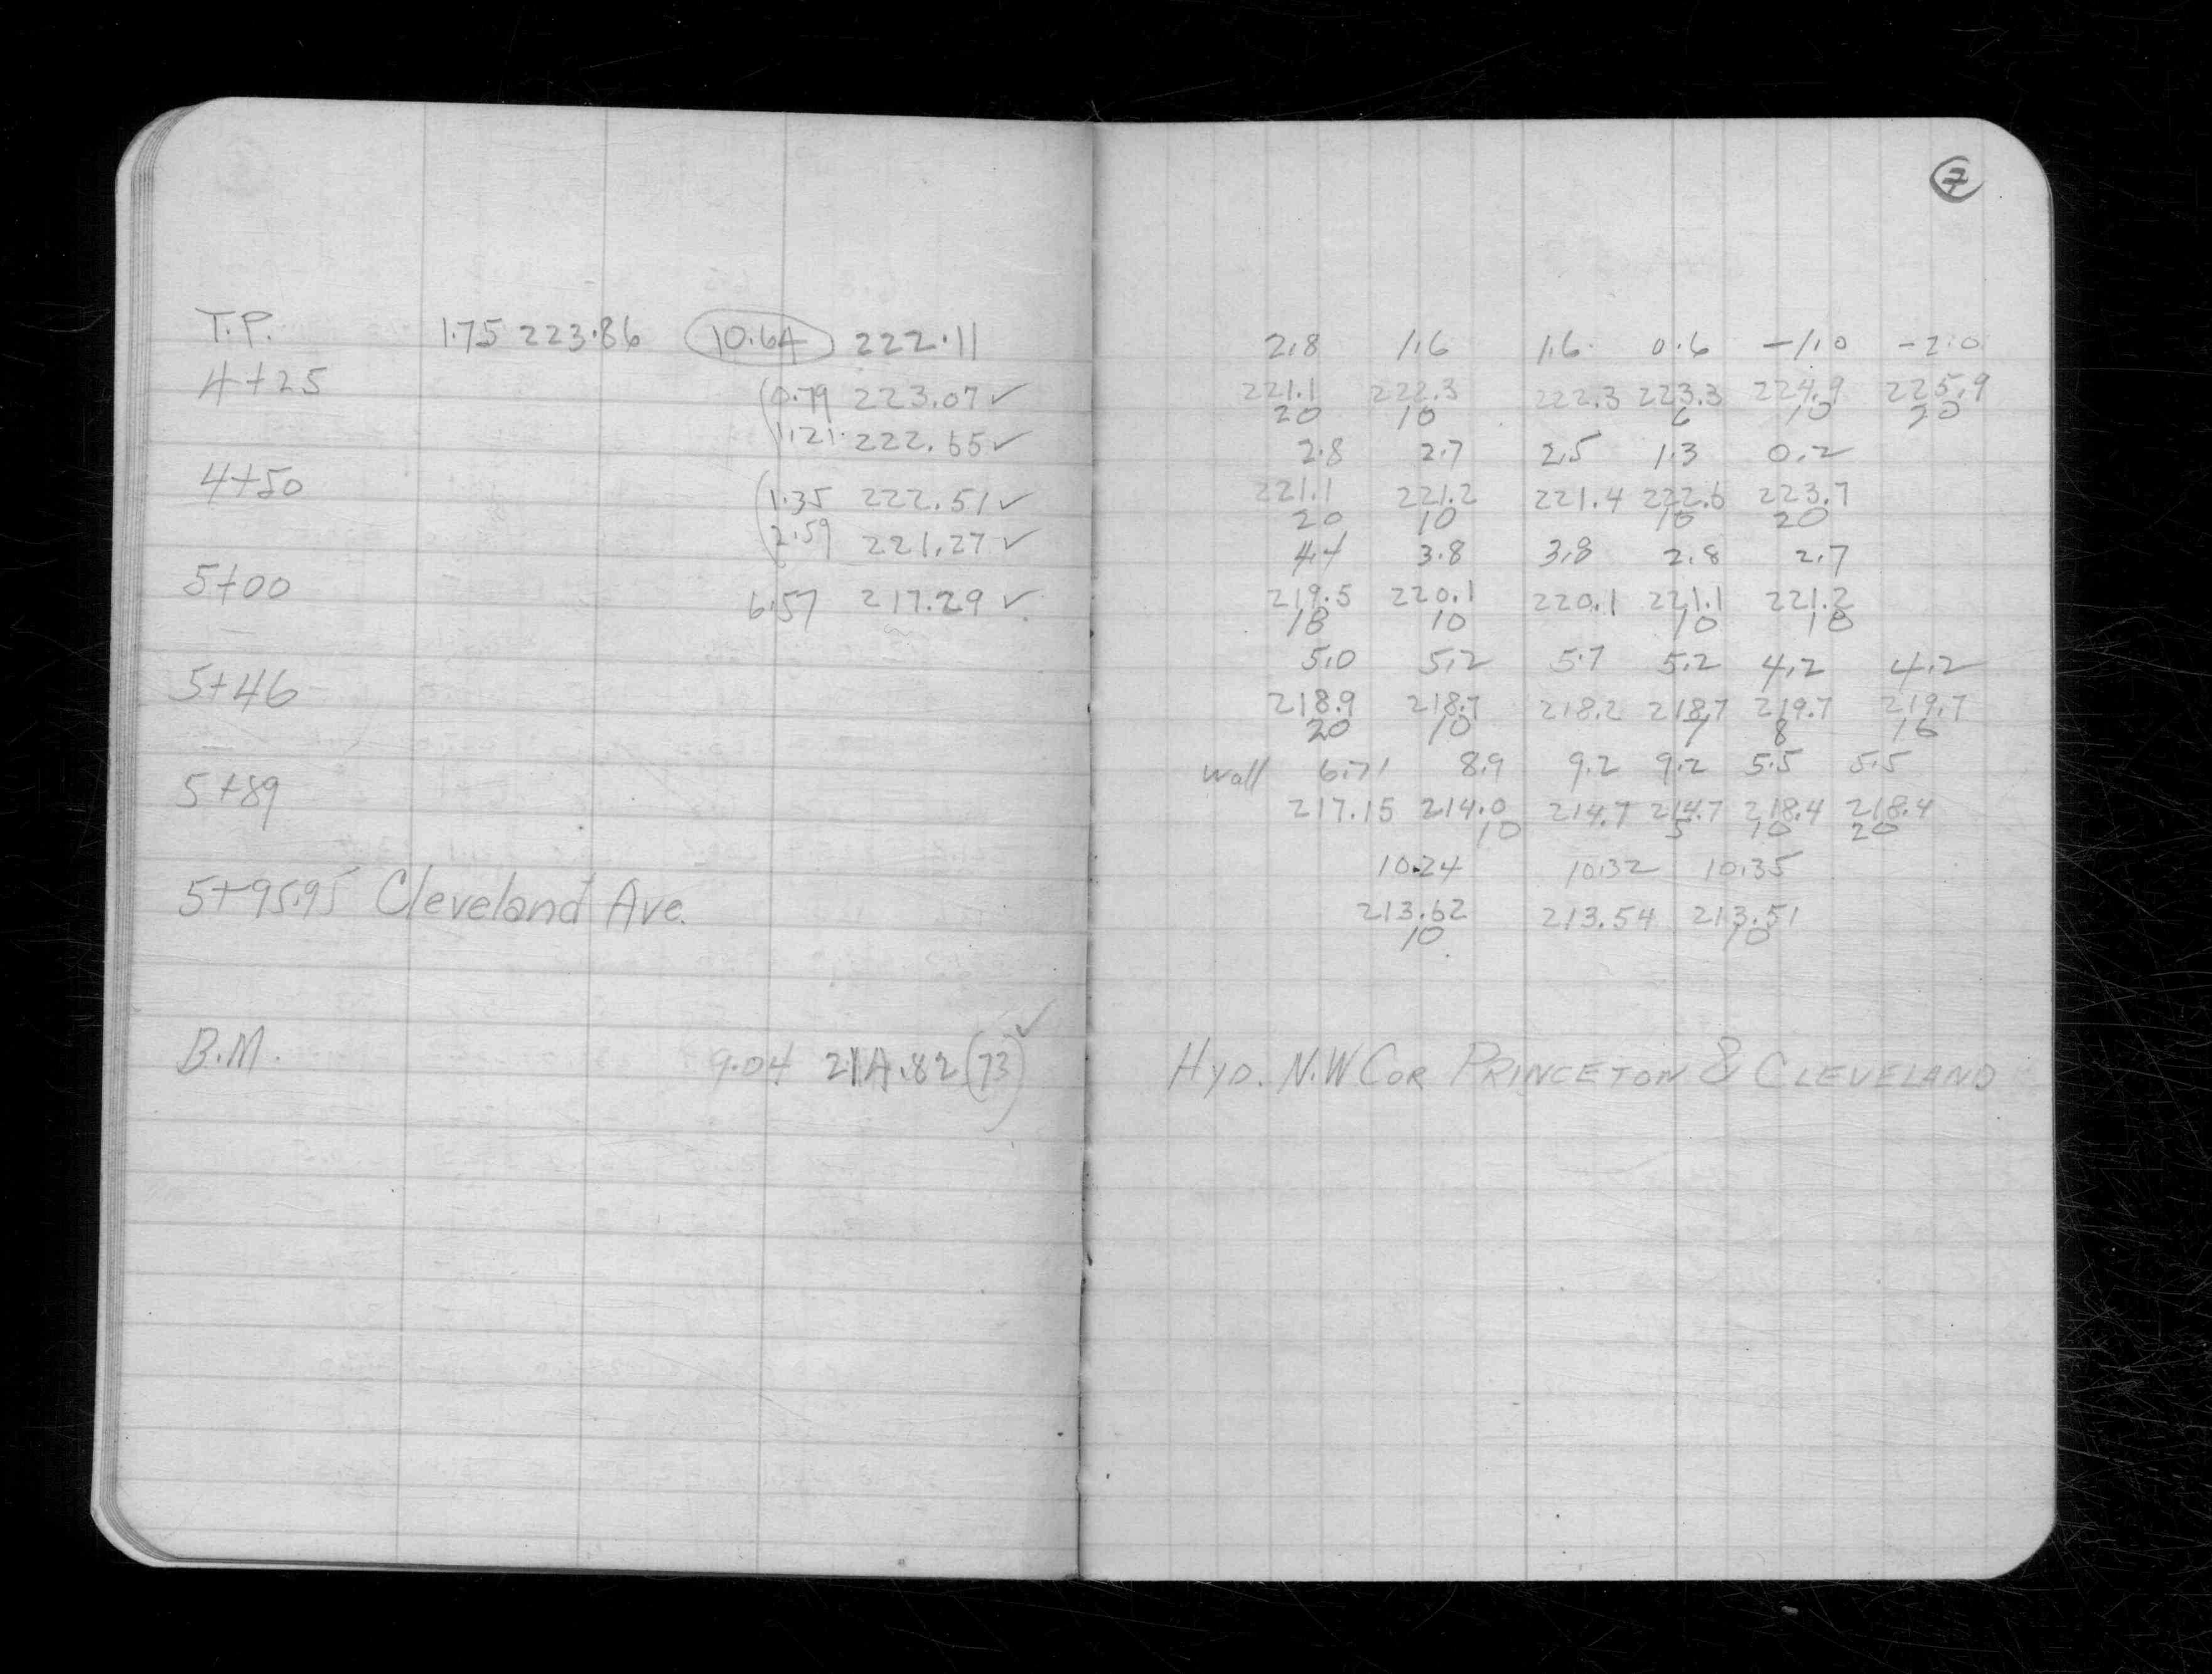 7
T.P. 1.75 223.86 10.64 222.11
4+25 (0.79 223.07 ✓
1.21 222.65 ✓
4+50 (1.35 222.51 ✓
2.59 221.27 ✓
5+00 6.57 217.29 ✓
5+46
5+89
5+95.95 Cleveland Ave.
B.M. 9.04 214.82 (73) ✓
2.8 1.6 1.6 0.6 -1.0 -2.0
221.1 222.3 222.3 223.3 224.9 225.9
20 10 6 10 20
2.8 2.7 2.5 1.3 0.2
221.1 221.2 221.4 222.6 223.7
20 10 10 20
4.4 3.8 3.8 2.8 2.7
219.5 220.1 220.1 221.1 221.2
18 10 10 18
5.0 5.2 5.7 5.2 4.2 4.2
218.9 218.7 218.2 218.7 219.7 219.7
20 10 7 8 16
Wall 6.71 8.9 9.2 9.2 5.5 5.5
217.15 214.0 214.7 214.7 218.4 218.4
10 5 10 20
10.24 10.32 10.35
213.62 213.54 213.51
10 10
HYD. N.W COR PRINCETON & CLEVELAND